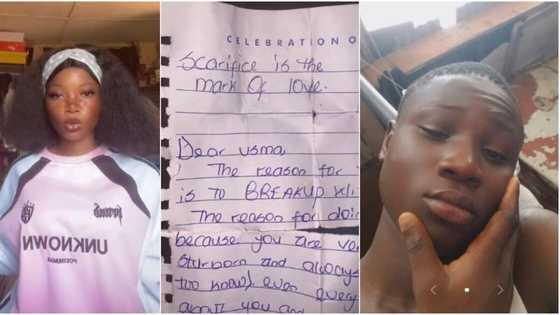 UNKNOWN
CELEBRATION O
Scarifice is the
mark Of love.
Dear usma
The reason for
is to BREAKUP
The reason for doin
because you are ve
and always
too know even every
about you and